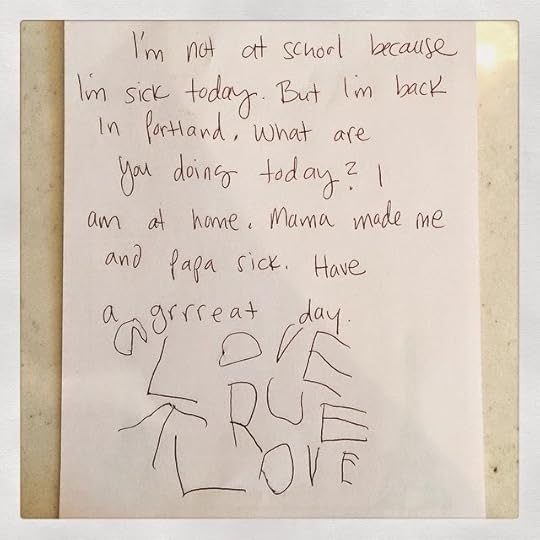 I'm not at school because
I'm sick today. But I'm back
in Portland. What are
you doing today? I
am at home. Mama made me
and Papa sick. Have
a grrreat day.
LOVE
TRUE
LOVE